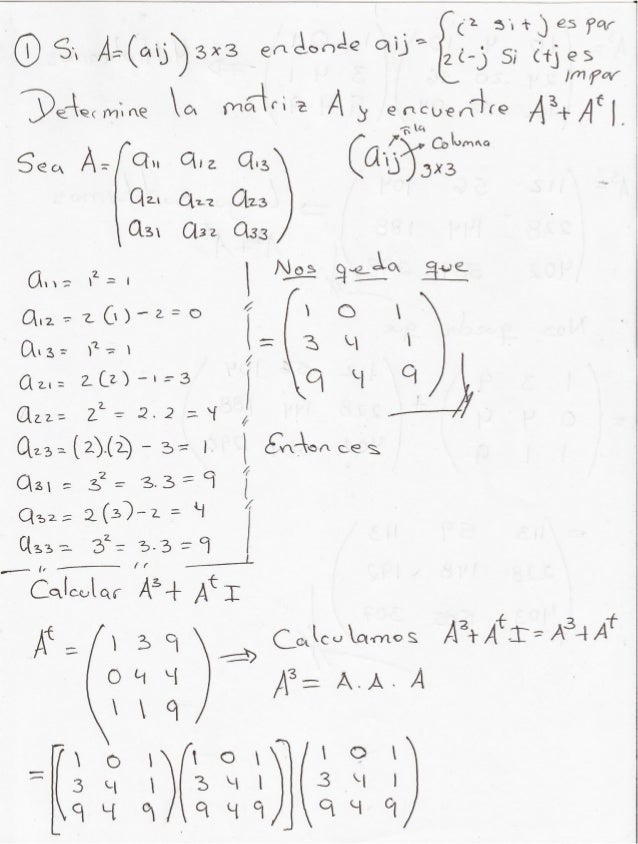 ① Si A=(aij) 3x3 en donde aij = { i² si i+j es par
2i-j Si i+j es impar
Determine la matriz A y encuentre A³ + Aᵗ I.
Sea A = ( a11 a12 a13
a21 a22 a23
a31 a32 a33 )
(aij)3x3 Fila Columna
a11 = 1² = 1
a12 = 2(1) - 2 = 0
a13 = 1² = 1
a21 = 2(2) - 1 = 3
a22 = 2² = 2.2 = 4
a23 = (2).(2) - 3 = 1.
a31 = 3² = 3.3 = 9
a32 = 2(3) - 2 = 4
a33 = 3² = 3.3 = 9
Nos queda que
= ( 1 0 1
3 4 1
9 4 9 )
Entonces
Calcular A³ + Aᵗ I
Aᵗ = ( 1 3 9
0 4 4
1 1 9 )
⇒ Calculamos A³ + Aᵗ I = A³ + Aᵗ
A³ = A . A . A
= [ ( 1 0 1 ) ( 1 0 1 ) ] ( 1 0 1 )
3 4 1 3 4 1 3 4 1
9 4 9 9 4 9 9 4 9